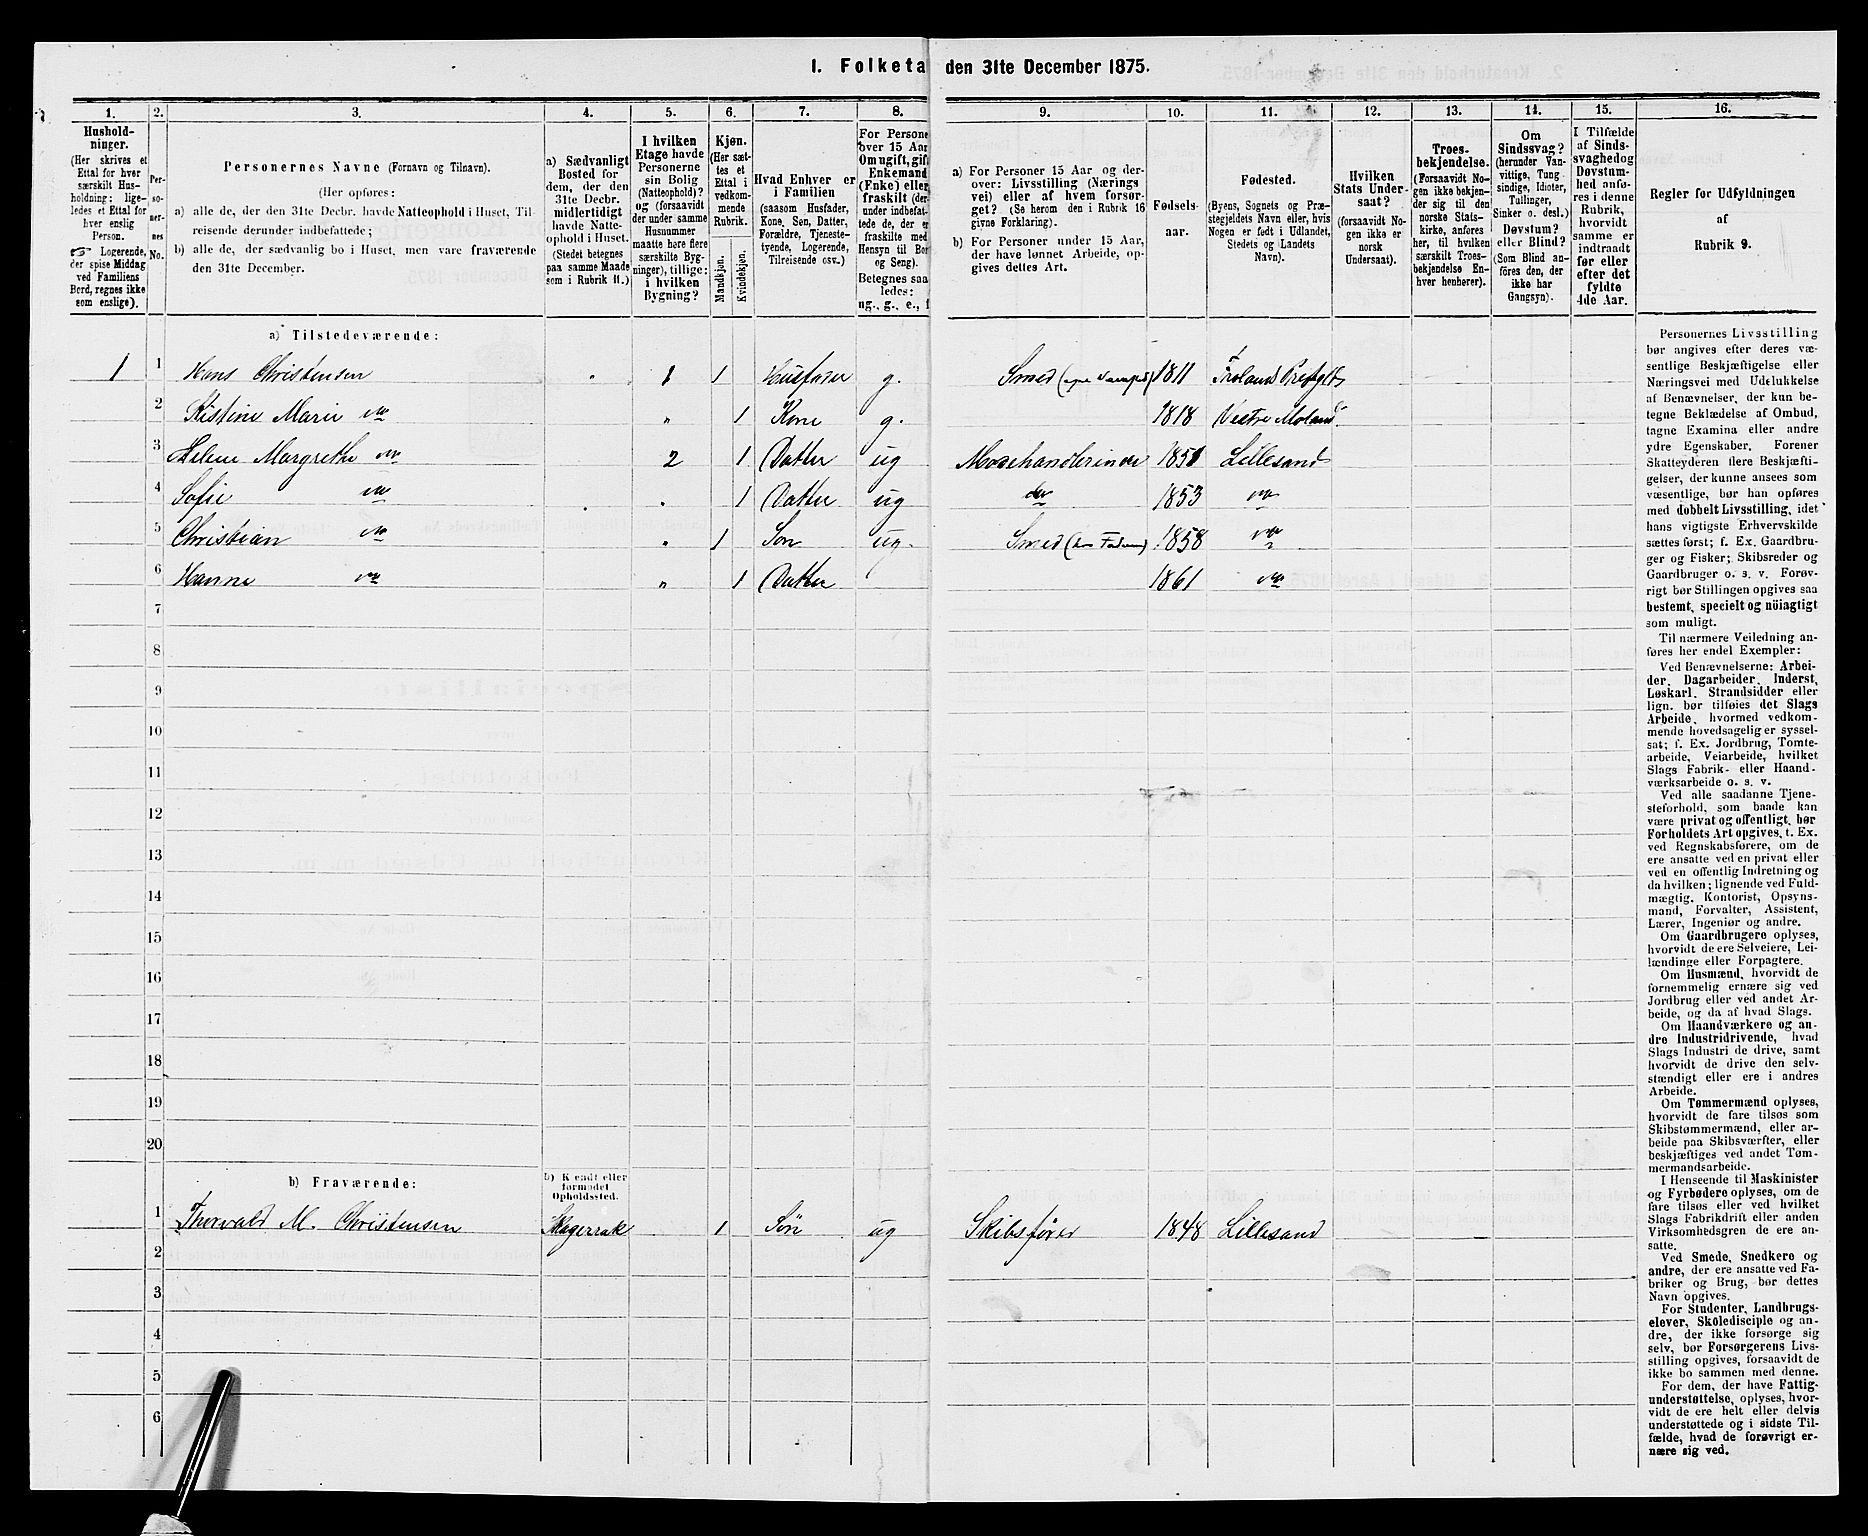 I. Folketa den 31te December 1875.
1. 2. 3. 4. 5. 6. 7. 8. 9. 10. 11. 12. 13. 14. 15. 16.
Hushold-
ninger.
(Her skrives et
Ettal for hver
særskilt Hus-
holdning; lige-
ledes et Ettal for
hver enslig
Person.
Logerende,
der spise Middag
ved Familiens
Bord, regnes ikke
som enslige).
Per-
so-
ner-
nes
No.
Personernes Navne (Fornavn og Tilnavn).
(Her opføres:
a) alle de, der den 31te Decbr. havde Natteophold i Huset, Til-
reisende derunder indbefattede;
b) alle de, der sædvanlig bo i Huset, men vare fraværende
den 31te December.
a) Sædvanligt
Bosted for
dem, der den
31te Decbr.
midlertidigt
havde Natte-
ophold i Huset.
(Stedet betegnes
paa samme Maade
som i Rubrik 11.)
I hvilken
Etage havde
Personerne
sin Bolig
(Natteophold)?
og (forsaavidt
der under samme
Husnummer
maatte høre flere
særskilte Byg-
ninger), tillige:
i hvilken
Bygning?
Kjøn.
(Her sæt-
tes et
Ettal i
vedkom-
mende
Rubrik.
Mandkjøn.
Kvindekjøn.
Hvad Enhver er
i Familien
(saasom Husfader,
Kone, Søn, Datter,
Forældre, Tjeneste-
tyende, Logerende,
Tilreisende osv.)
For Persone
over 15 Aar
Om ugift, gift
Enkemand
(Enke) eller
fraskilt (der-
under indbefat-
tede de, der er
fraskilte med
Hensyn til Bor
og Seng).
Betegnes saa
ledes:
ug., g., e., f
a) For Personer 15 Aar og der-
over: Livsstilling (Nærings
vei) eller af hvem forsør-
get? (Se herom den i Rubrik 16
givne Forklaring).
b) For Personer under 15 Aar,
der have lønnet Arbeide, op-
gives dettes Art.
Fødsels-
aar.
Fødested.
(Byens, Sognets og Præ-
stegjeldets Navn eller, hvis
Nogen er født i Udlandet,
Stedets og Landets
Navn).
Hvilken
Stats Under-
saat?
(forsaavidt No-
gen ikke er
norsk
Undersaat).
Troes-
bekjendelse.
(Forsaavidt No-
gen ikke bekjen-
der sig til den
norske Stats-
kirke, anføres
her, til hvilken
særskilt Troes-
bekjendelse En-
hver henhører).
Om
Sindssvag?
(herunder Van-
vittige, Tung
sindige, Idioter,
Tullinger,
Sinker o. desl.)
Døvstum?
eller Blind?
(Som Blind an-
føres den, der
ikke har
Gangsyn).
I Tilfælde
af Sinds-
svaghed og
Døvstum-
hed anfø-
res i denne
Rubrik,
hvorvidt
samme er
indtraadt
før eller
efter det
fyldte
4de Aar.
Regler for Udfyldningen
af
Rubrik 9.
a) Tilstedeværende:
1 1 Hans Christensen 1 1 Husfader g. Smed 1811 Froland
2 Kistine Marie do " 1 Kone g. 1818 Vestre Moland
3 Helene Margrethe do 2 1 Datter ug Modehandlerinde 1851 Lillesand
4 Sofie do " 1 Datter ug do 1853 do
5 Christian do " 1 Søn ug. Smed 1858 do
6 Hanne do " 1 Datter 1861 do
7
8
9
10
11
12
13
14
15
16
17
18
19
20
b) Fraværende:
b) Kjendt eller
formodet
Opholdssted.
1 Thorvald M. Christensen Skagerrak 1 Søn ug Skibsfører 1848 Lillesand
2
3
4
5
6
Personernes Livsstilling
bør angives efter deres væ-
sentlige Beskjæftigelse eller
Næringsvei med Udelukkelse
af Benævnelser, der kun be-
tegne Beklædelse af Ombud,
tagne Examina eller andre
ydre Egenskaber. Forener
Skatteyderen flere Beskjæfti-
gelser, der kunne ansees som
væsentlige, bør han opføres
med dobbelt Livsstilling, idet
hans vigtigste Erhvervskilde
sættes først; f. Ex. Gaardbru-
ger og Fisker; Skibsreder og
Gaardbruger o. s. v. Forøv-
rigt bør Stillingen opgives saa
bestemt, specielt og nøiagtigt
som muligt.
Til nærmere Veiledning an-
føres her endel Exempler:
Ved Benævnelserne: Arbei-
der, Dagarbeider, Inderst,
Løskarl, Strandsidder eller
lign. bør tilføies det Slags
Arbeide, hvormed vedkom-
mende hovedsagelig er syssel-
sat; f. Ex. Jordbrug, Tomte-
arbeide, Veiarbeide, hvilket
Slags Fabrik- eller Haand-
værksarbeide o. s. v.
Ved alle saadanne Tjene-
steforhold, som baade kan
være privat og offentligt, bør
Forholdets Art opgives, t. Ex.
ved Regnskabsførere, om de
ere ansatte ved en privat eller
ved en offentlig Indretning og
da hvilken; lignende ved Fuld-
mægtig, Kontorist, Opsyns-
mand, Forvalter, Assistent,
Lærer, Ingeniør og andre.
Om Gaardbrugere oplyses,
hvorvidt de ere Selveiere, Lei-
lændinge eller Forpagtere.
Om Husmænd, hvorvidt de
fornemmelig ernære sig ved
Jordbrug eller ved andet Ar-
beide, og da af hvad Slags.
Om Haandværkere og an-
dre Industridrivende, hvad
Slags Industri de drive, samt
hvorvidt de drive den selv-
stændigt eller ere i andres
Arbeide.
Om Tømmermænd oplyses,
hvorvidt de fare tilsøs som
Skibstømmermænd, eller ar-
beide paa Skibsværfter, eller
beskjæftiges ved andet Tøm-
mermandsarbeide.
I Henseende til Maskinister
og Fyrbødere oplyses, om de
fare tilsøs eller ved hvilket
Slags Fabrikdrift eller anden
Virksomhedsgren de ere an-
satte.
Ved Smede, Snedkere og
andre, der ere ansatte ved Fa-
briker og Brug, bør dettes
Navn opgives.
For Studenter, Landbrugs-
elever, Skoledisciple og an-
dre, der ikke forsørge sig
selv, bør Forsørgerens Livs-
stilling opgives, forsaavidt de
ikke bo sammen med denne.
For dem, der have Fattig-
understøttelse, oplyses, hvor-
vidt de ere helt eller delvis
understøttede og i sidste Til-
fælde, hvad de forøvrigt er-
nære sig ved.